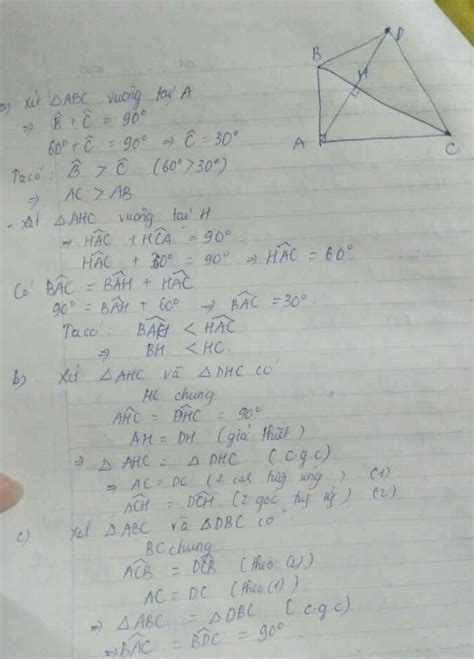 B
D
H
A
C
a) Xét △ABC vuông tại A
⇒ B̂ + Ĉ = 90°
60° + Ĉ = 90° ⇒ Ĉ = 30°
Ta có: B̂ > Ĉ (60° > 30°)
⇒ AC > AB
- Xét △AHC vuông tại H
⇒ HAC + HCA = 90°
HAC + 30° = 90° ⇒ HAC = 60°
Có BAC = BAH + HAC
90° = BAH + 60° ⇒ BAC = 30°.
Ta có: BAH < HAC
⇒ BH < HC.
b) Xét △AHC và △DHC có
HC chung
AHC = DHC = 90°
AH = DH (giả thiết)
⇒ △AHC = △DHC (c.g.c)
⇒ AC = DC (2 cạnh ứng) (1)
ACH = DCH (2 góc ứng) (2)
c) Xét △ABC và △DBC có
BC chung
ACB = DCB (theo (2))
AC = DC (theo (1))
⇒ △ABC = △DBC (c.g.c)
⇒ BAC = BDC = 90°